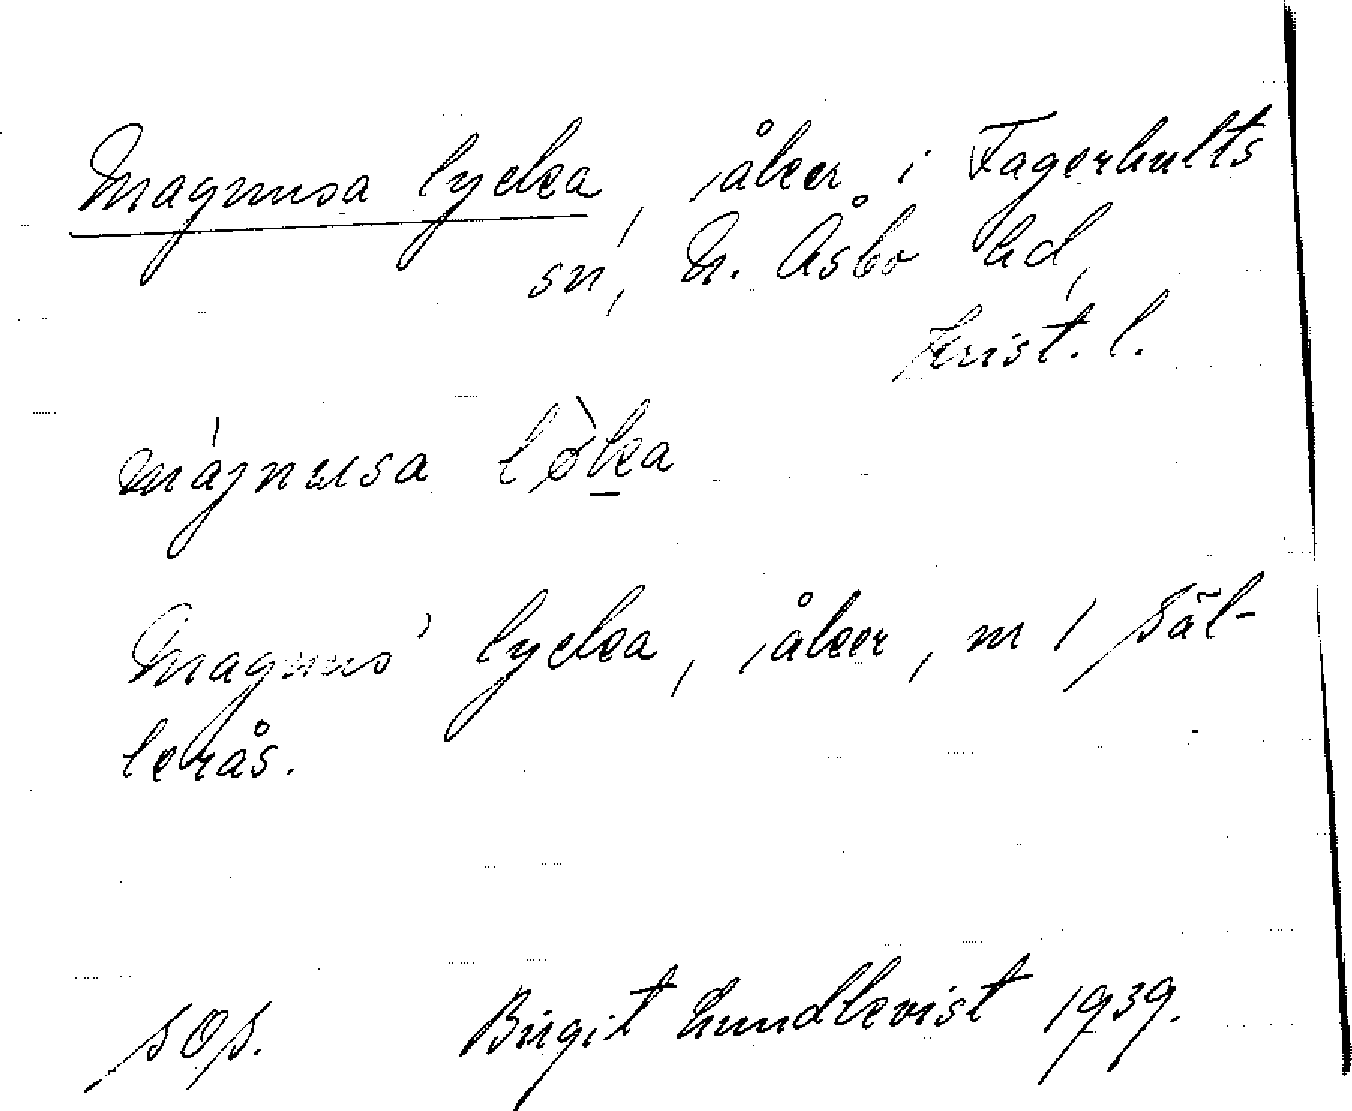 Magnusa lycka, åker i Fagerhults
sn, N. Åsbo hd,
Krist. l.
mágnusa lø̀ka
Magnus' lycka, åker, nr 1 Säl-
lerås.
SOS. Birgit Lundkvist 1939.